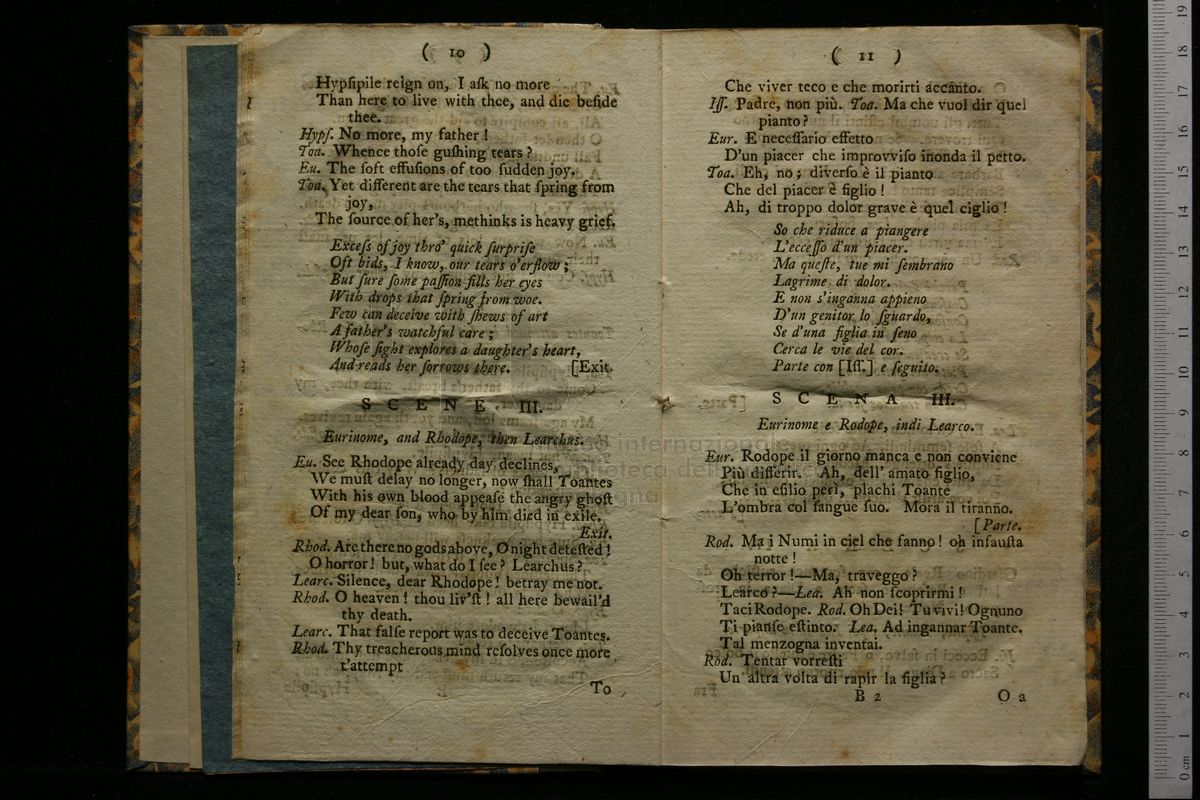 ( 10 )
Hypſipile reign on, I aſk no more
Than here to live with thee, and die beſide
thee.
Hypſ. No more, my father !
Toa. Whence thoſe guſhing tears ?
Eu. The ſoft effuſions of too ſudden joy.
Toa. Yet different are the tears that ſpring from
joy,
The ſource of her's, methinks is heavy grief.
Exceſs of joy thro' quick ſurpriſe
Oft bids, I know, our tears o'erflow ;
But ſure ſome paſſion fills her eyes
With drops that ſpring from woe.
Few can deceive with ſhews of art
A father's watchful care ;
Whoſe ſight explores a daughter's heart,
And reads her ſorrows there. [Exit.
SCENE III.
Eurinome, and Rhodope, then Learchus.
Eu. See Rhodope already day declines,
We muſt delay no longer, now ſhall Toantes
With his own blood appeaſe the angry ghoſt
Of my dear ſon, who by him died in exile.
Exit.
Rhod. Are there no gods above, O night deteſted !
O horror ! but, what do I ſee ? Learchus ?
Learc. Silence, dear Rhodope ! betray me not.
Rhod. O heaven ! thou liv'ſt ! all here bewail'd
thy death.
Learc. That falſe report was to deceive Toantes.
Rhod. Thy treacherous mind reſolves once more
t'attempt
To
( 11 )
Che viver teco e che morirti accanto.
Iſſ. Padre, non più. Toa. Ma che vuol dir quel
pianto ?
Eur. E neceſſario effetto
D'un piacer che improvviſo inonda il petto.
Toa. Eh, no ; diverſo è il pianto
Che del piacer è figlio !
Ah, di troppo dolor grave è quel ciglio !
So che riduce a piangere
L'ecceſſo d'un piacer.
Ma queſte, tue mi ſembrano
Lagrime di dolor.
E non s'inganna appieno
D'un genitor lo ſguardo,
Se d'una figlia in ſeno
Cerca le vie del cor.
Parte con [Iſſ.] e ſeguito.
SCENA III.
Eurinome e Rodope, indi Learco.
Eur. Rodope il giorno manca e non conviene
Più differir. Ah, dell' amato figlio,
Che in eſilio perì, plachi Toante
L'ombra col ſangue ſuo. Mora il tiranno.
[Parte.
Rod. Ma i Numi in ciel che fanno ! oh infauſta
notte !
Oh terror !—Ma, traveggo ?
Learco ?—Lea. Ah non ſcoprirmi !
Taci Rodope. Rod. Oh Dei! Tu vivi! Ognuno
Ti pianſe eſtinto. Lea. Ad ingannar Toante.
Tal menzogna inventai.
Rod. Tentar vorreſti
Un' altra volta di rapir la figlia ?
B 2 O a